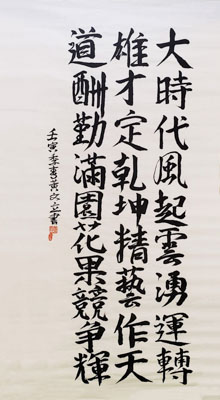 大時代風起雲湧運轉
雄才定乾坤精藝作天
道酬勤滿園花果競爭輝
壬寅季春黄文立書